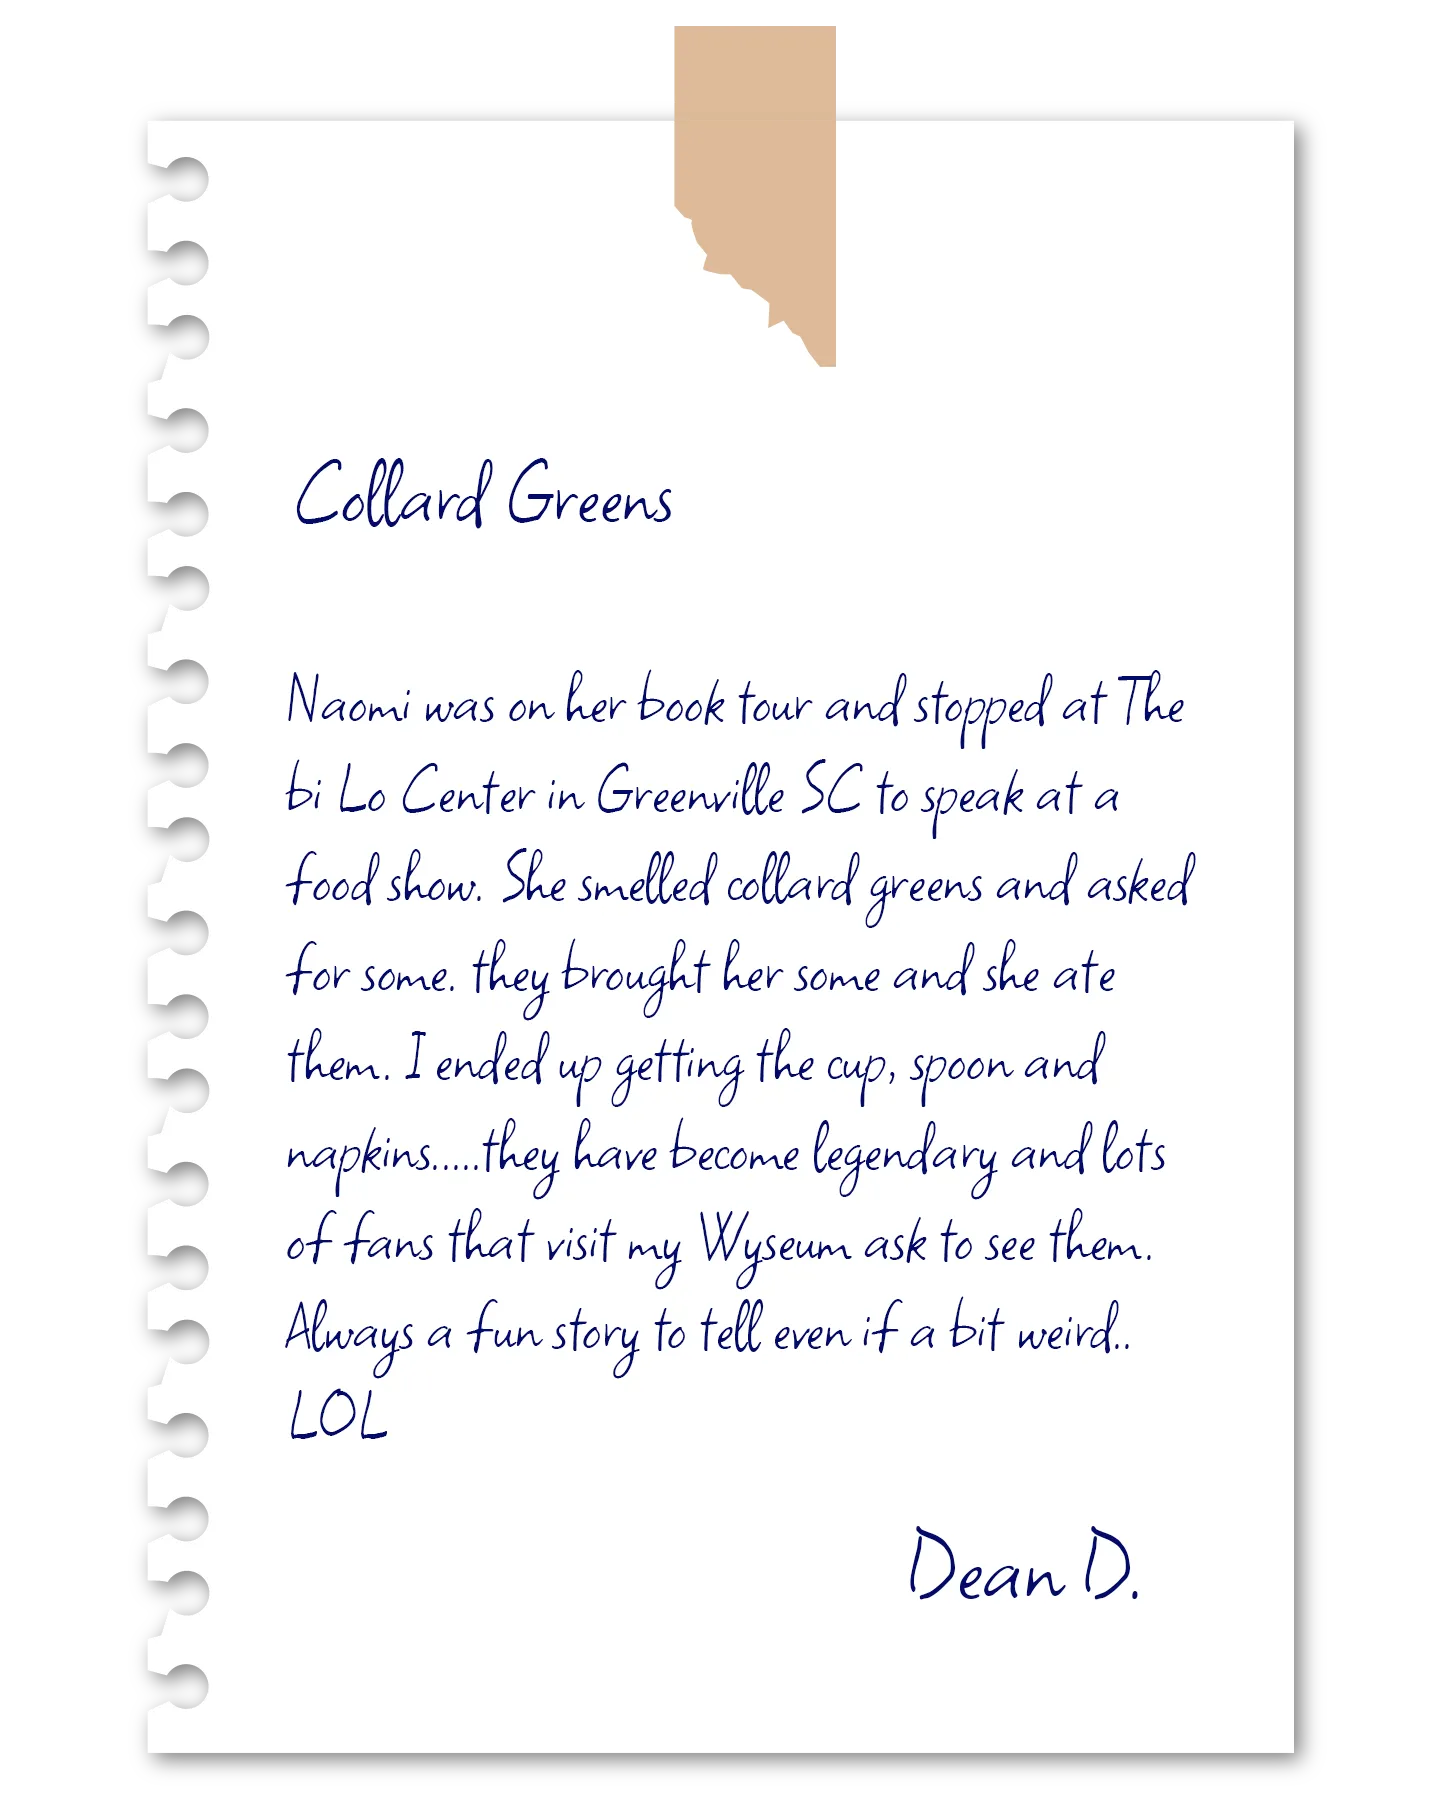 Collard Greens
Naomi was on her book tour and stopped at The
bi Lo Center in Greenville SC to speak at a
food show. She smelled collard greens and asked
for some. they brought her some and she ate
them. I ended up getting the cup, spoon and
napkins.....they have become legendary and lots
of fans that visit my Wyseum ask to see them.
Always a fun story to tell even if a bit weird..
LOL
Dean D.